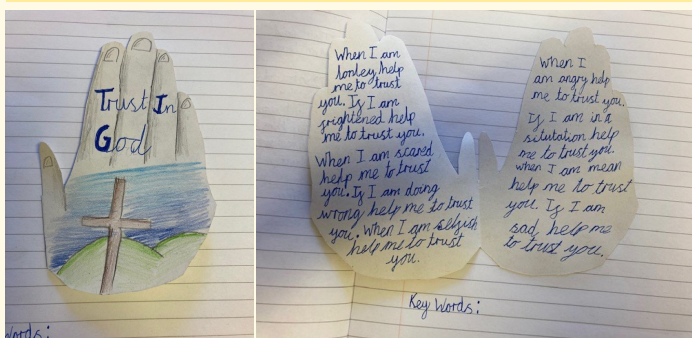 Trust In
God
words:
When I am
lonley help
me to trust
you. If I am
frightened help
me to trust you.
When I am scared
help me to trust
you. If I am doing
wrong help me to trust
you. When I am selfish
help me to trust
you.
When I
am angry help
me to trust you.
If I am in a
situtation help
me to trust you.
when I am mean
help me to trust
you. If I am
sad help me
to trust you.
Key Words: